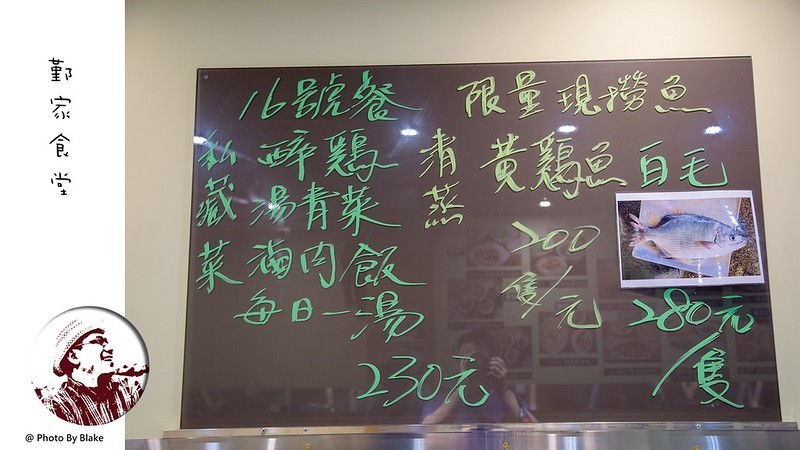 鄞家食堂
@ Photo By Blake
私藏菜
16號餐
醉雞
湯青菜
滷肉飯
每日一湯
230元
限量現撈魚
清蒸
黃鷄魚
200
隻/元
白毛
280元
/隻